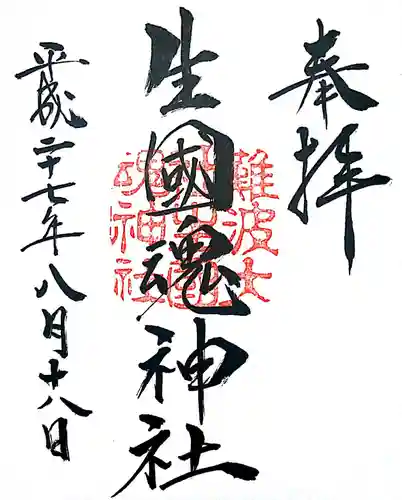 奉拝
生國魂神社
難波大社生國魂神社
平成二十七年八月十八日